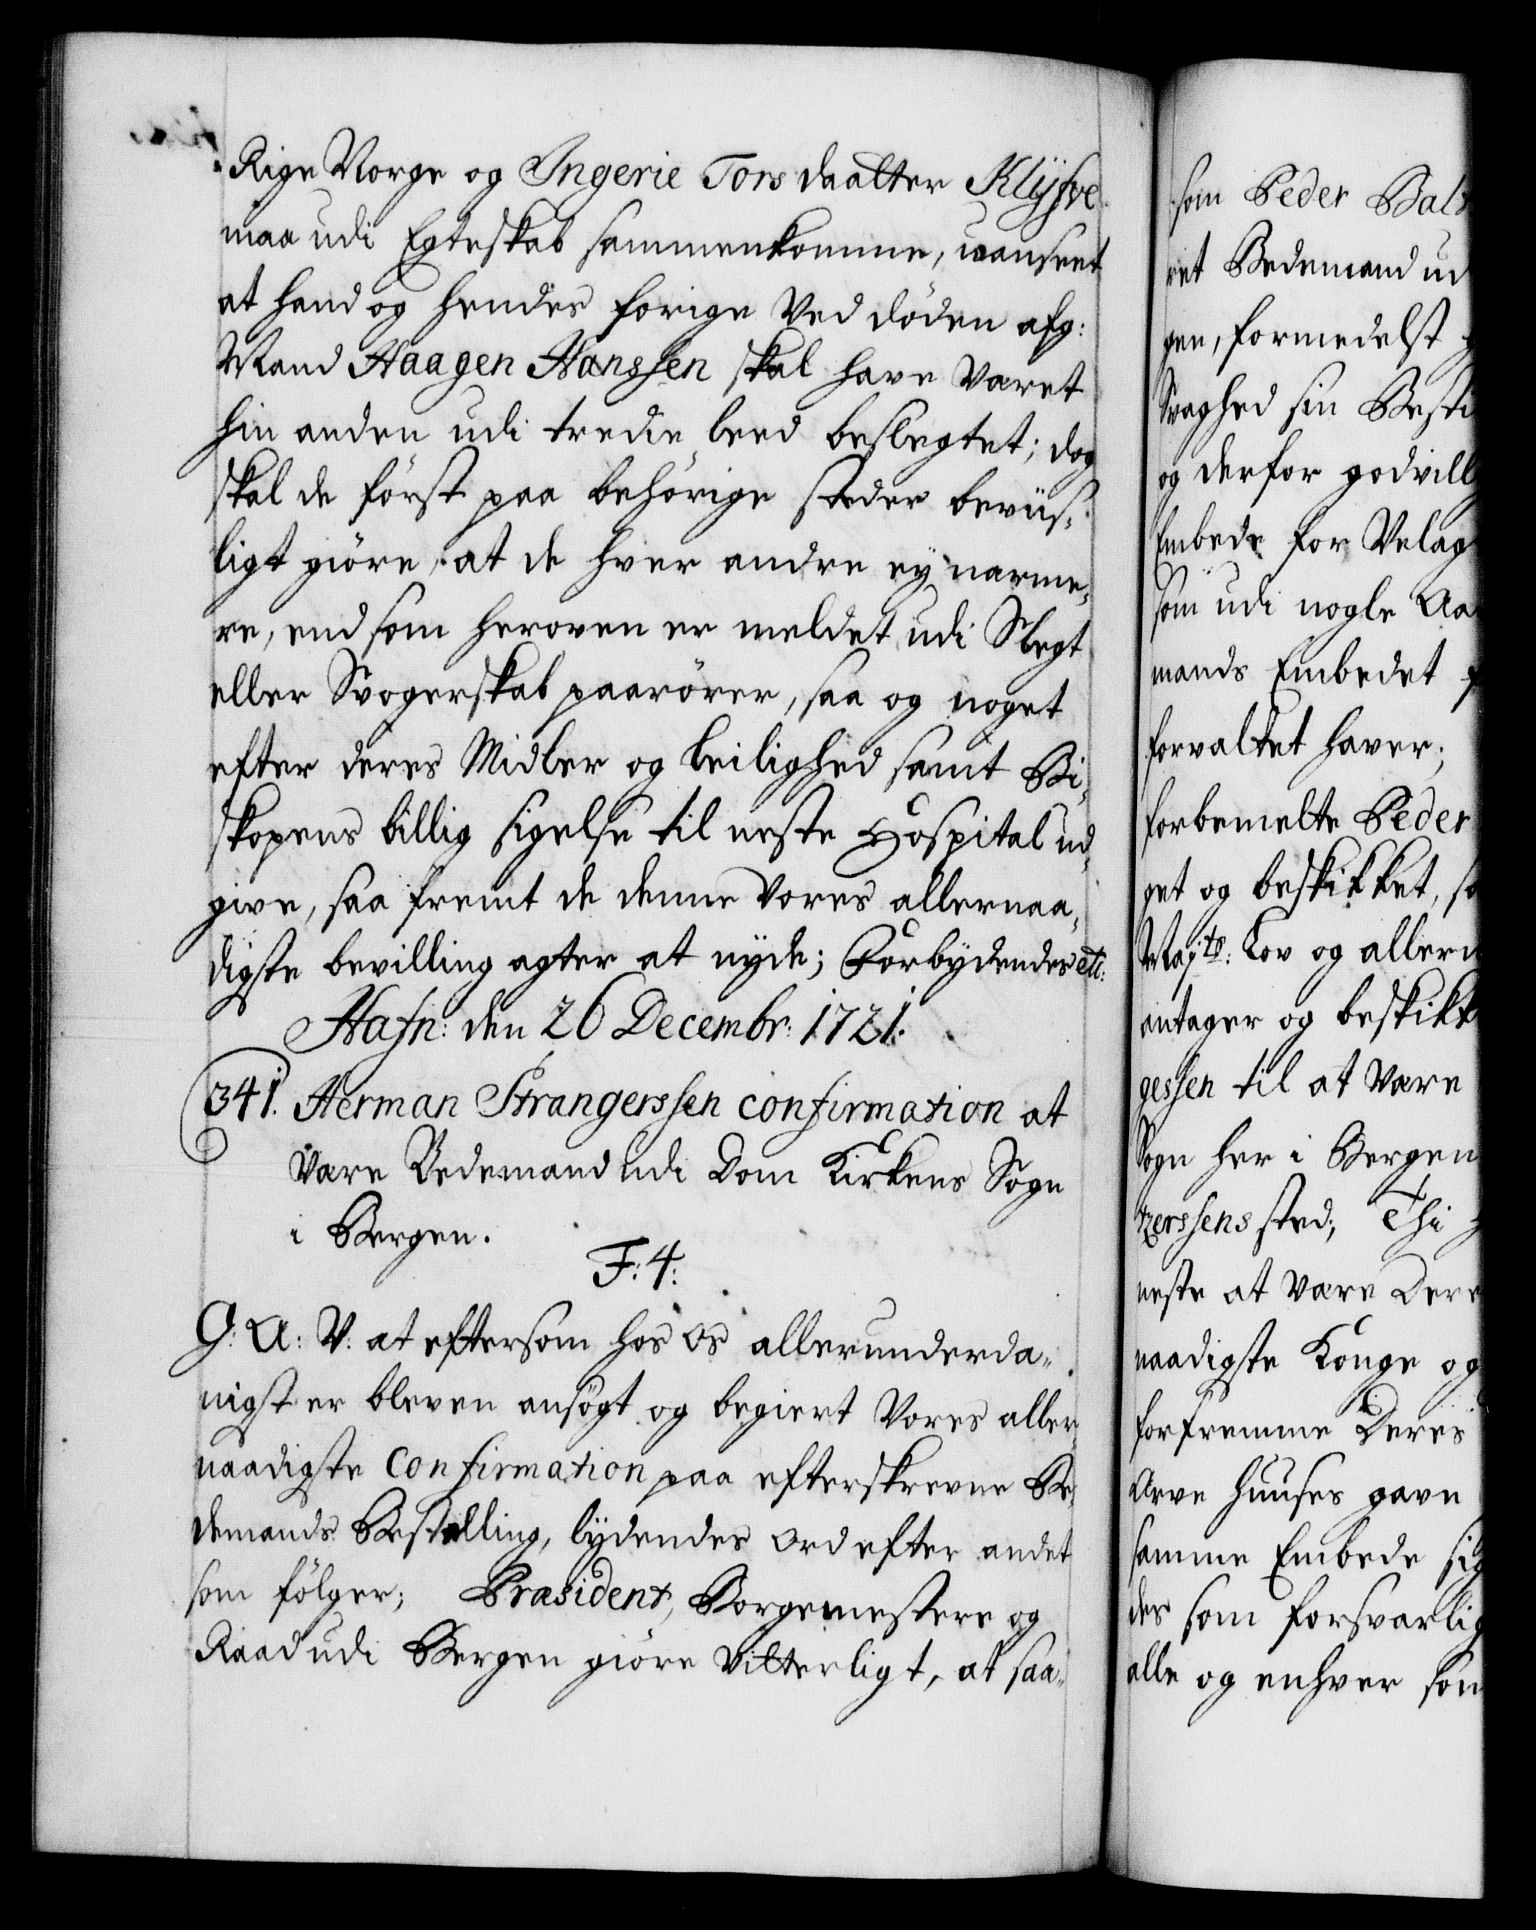 Rige Norge og Ingerie Tors daatter Klyfve
maa udi Egteskab sammenkomme, uanseet
at hand og hendes forige Ved döden afg:
Mand Haagen Hanssen skal have Været
hin anden udi tredie leed beslegtet; dog
skal de först paa behörige stæder beviis-
ligt giöre, at de hver andre ey nærme-
re, end som heroven er meldet udi Slegt
eller Svogerskab paarörer, saa og noget
efter deres Midler og Leilighed samt Bi-
skopens billig sigelse til neste Hospital ud-
give, saa fremt de denne Vores allernaa-
digste bevilling agter at nyde; Forbydendes etc:
Hafn: den 26 Decembr: 1721.
341. Herman Strangerssen confirmation at
Være Bedemand udi Dom Kirkens Sogn
i Bergen.
F: 4:
G: A: V: at eftersom hos os allerunderda-
nigst er bleven ansögt og begiert Vores aller-
naadigste Confirmation paa efterskrevne Be-
demands Bestalling, lydendes ord efter andet
som fölger; Præsident, Borgemestere og
Raad udi Bergen giöre Vitterligt, at saa-
som Peder Balt
ret Bedemand ud
gen, formedelst
Svaghed sin Besti
og derfor godvill
Embede for Velag
som udi nogle Aa
mands Embedet
forvaltet haver;
forbemelte Peder
get og beskikket, so
Maj.ts: Lov og allern
antager og beskikk
gessen til at Være
Sogn her i Bergen
zerssens sted; Thi
neste at Være Dere
naadigste Konge og
forfremme Deres
Arve Huuses gavn
samme Embede sig
des som forsvarlig
alle og enhver som